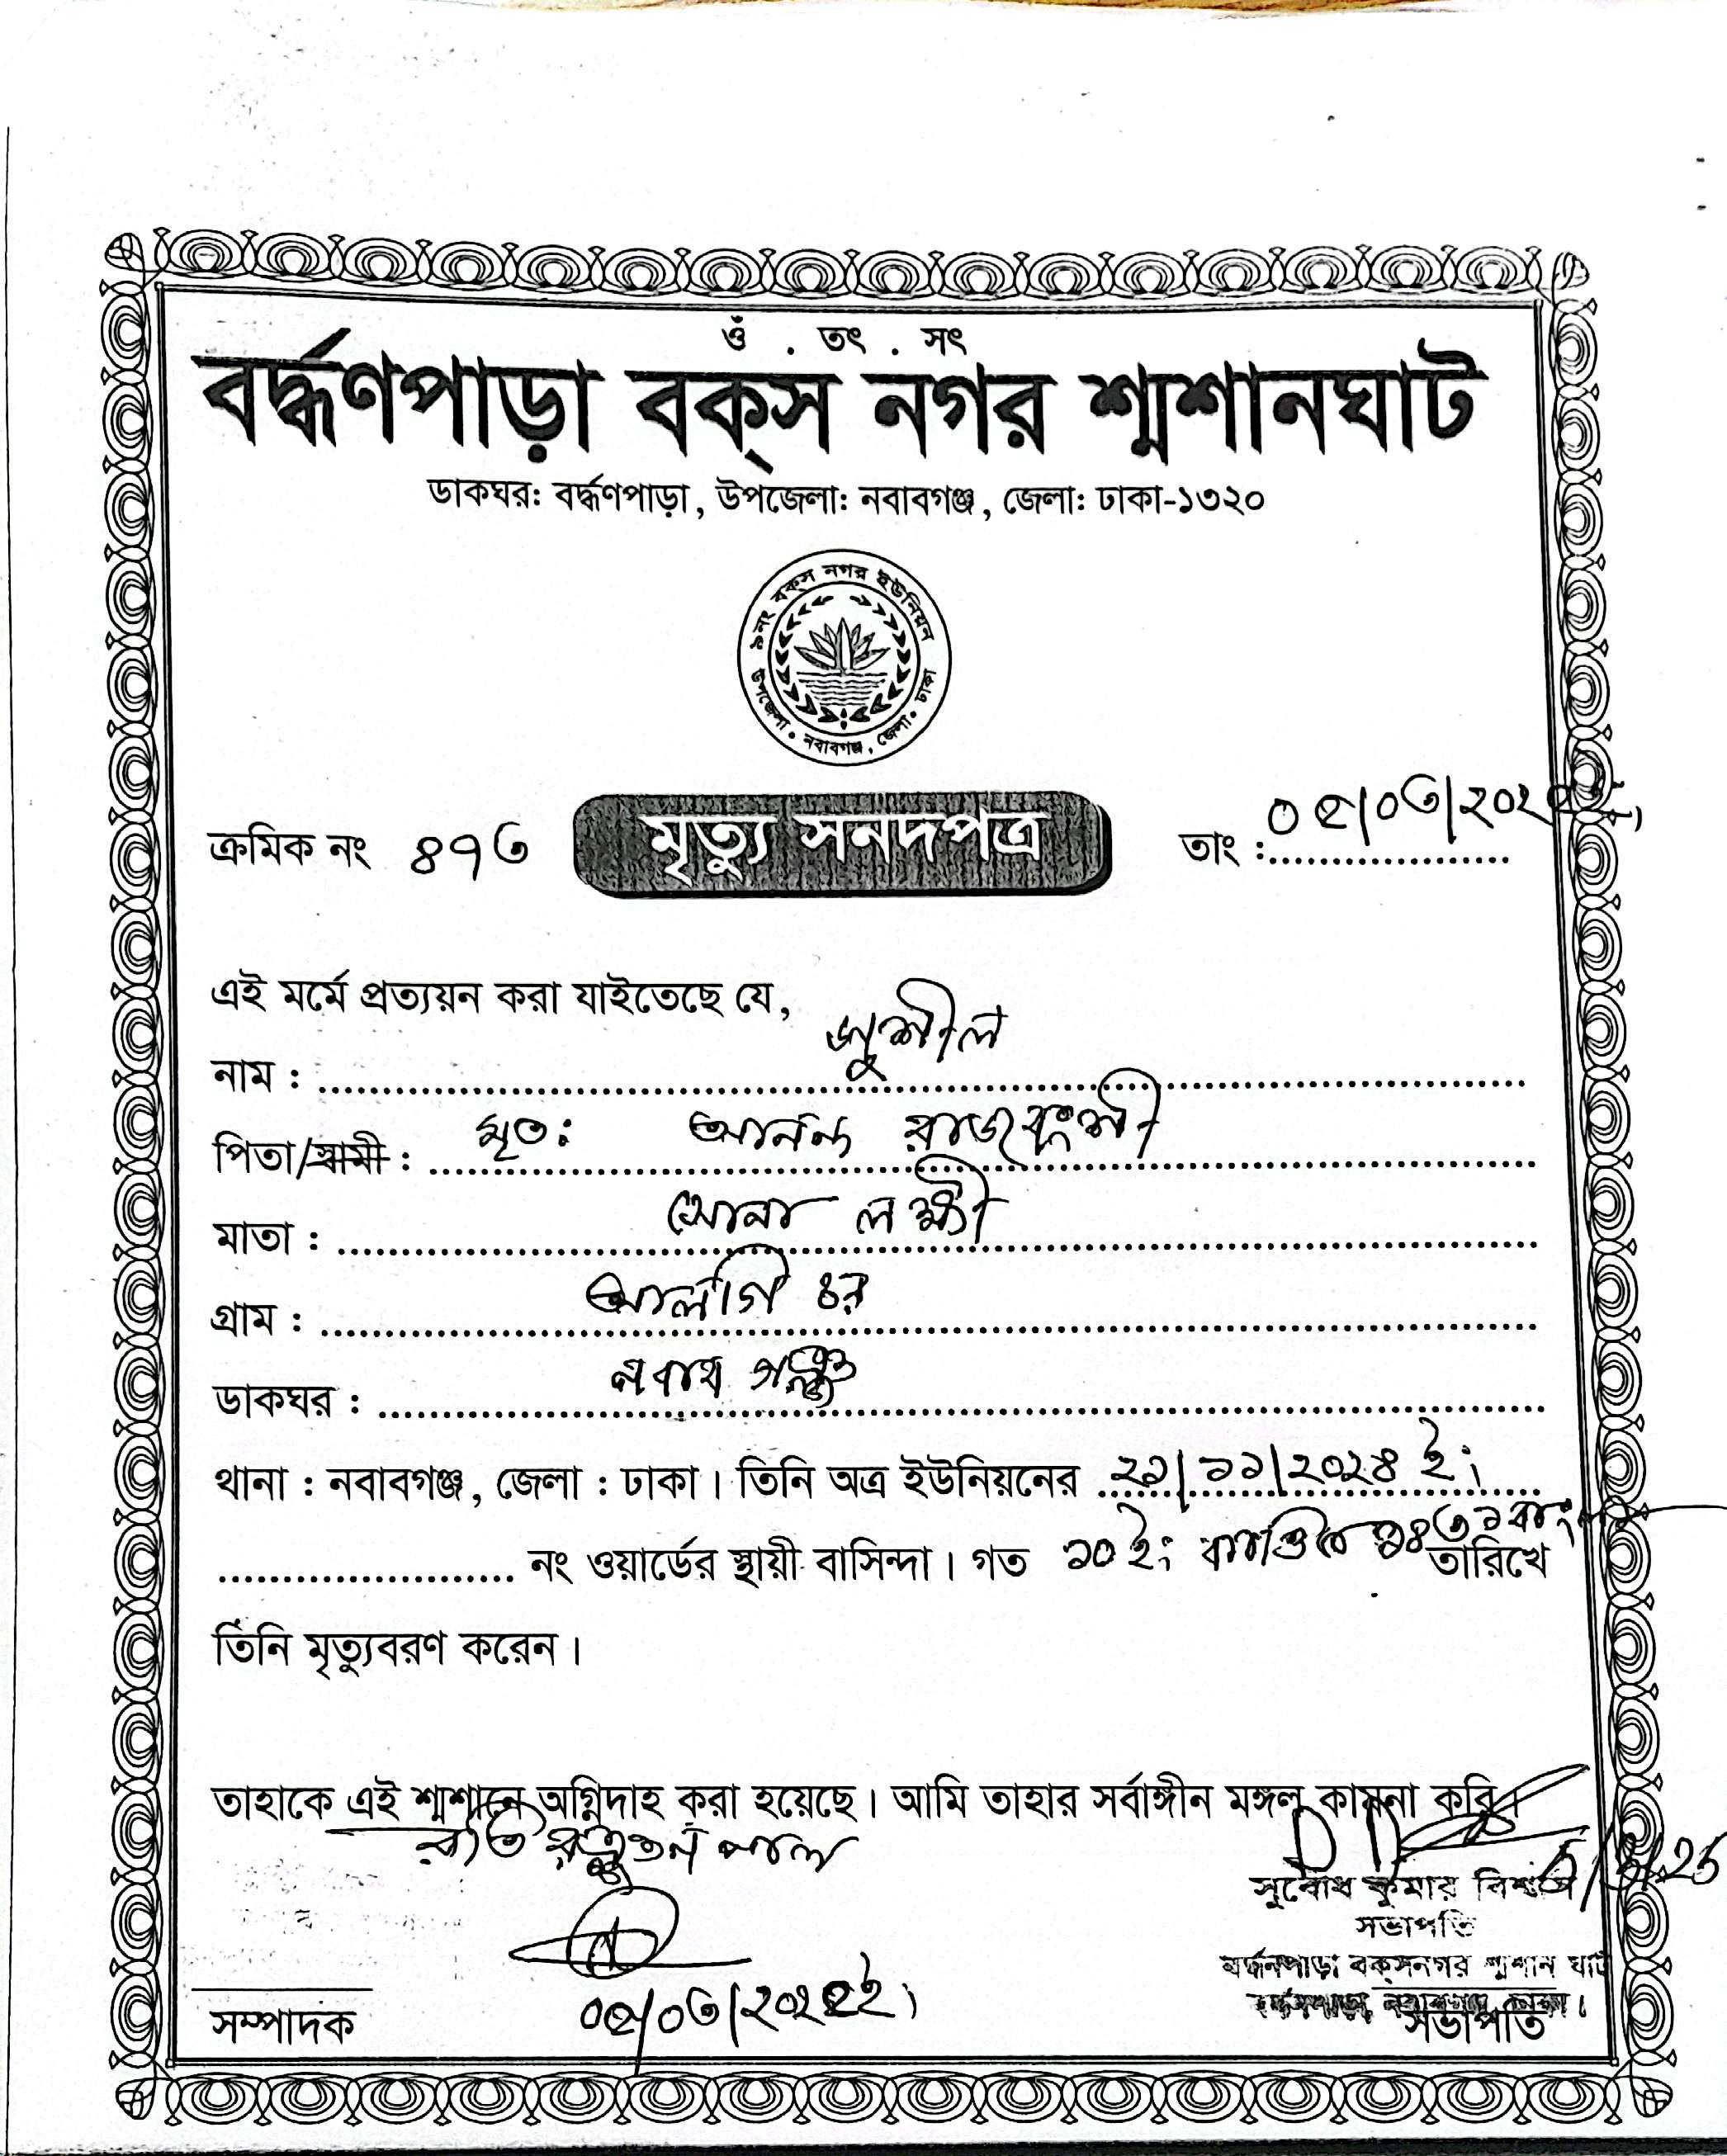 ওঁ . তৎ . সৎ
বর্দ্ধণপাড়া বক্‌স নগর শ্মশানঘাট
ডাকঘর: বর্দ্ধণপাড়া, উপজেলা: নবাবগঞ্জ, জেলা: ঢাকা-১৩২০
৯নং বক্‌স নগর ইউনিয়ন
উপজেলা • নবাবগঞ্জ, জেলা • ঢাকা
ক্রমিক নং ৪৭৩ মৃত্যু সনদপত্র তাং : ০৫/০৩/২০২৫ইং
এই মর্মে প্রত্যয়ন করা যাইতেছে যে,
নাম : সুশীল
পিতা/স্বামী : মৃত: আনন্দ রাজবংশী
মাতা : সোনা লক্ষ্মী
গ্রাম : আলগি চর
ডাকঘর : নবাব গঞ্জ
থানা : নবাবগঞ্জ, জেলা : ঢাকা। তিনি অত্র ইউনিয়নের ২১/১১/২০২৪ ইং
নং ওয়ার্ডের স্থায়ী বাসিন্দা। গত ১০ই: তারিখে
তিনি মৃত্যুবরণ করেন।
তাহাকে এই শ্মশানে অগ্নিদাহ করা হয়েছে। আমি তাহার সর্বাঙ্গীন মঙ্গল কামনা করি।
পাল
সুবোধ কুমার বিশ্বাস 5/3/25
সভাপতি
বর্দ্ধনপাড়া বক্‌সনগর শ্মশান ঘাট
সম্পাদক ০৫/০৩/২০২৫ইং সভাপতি